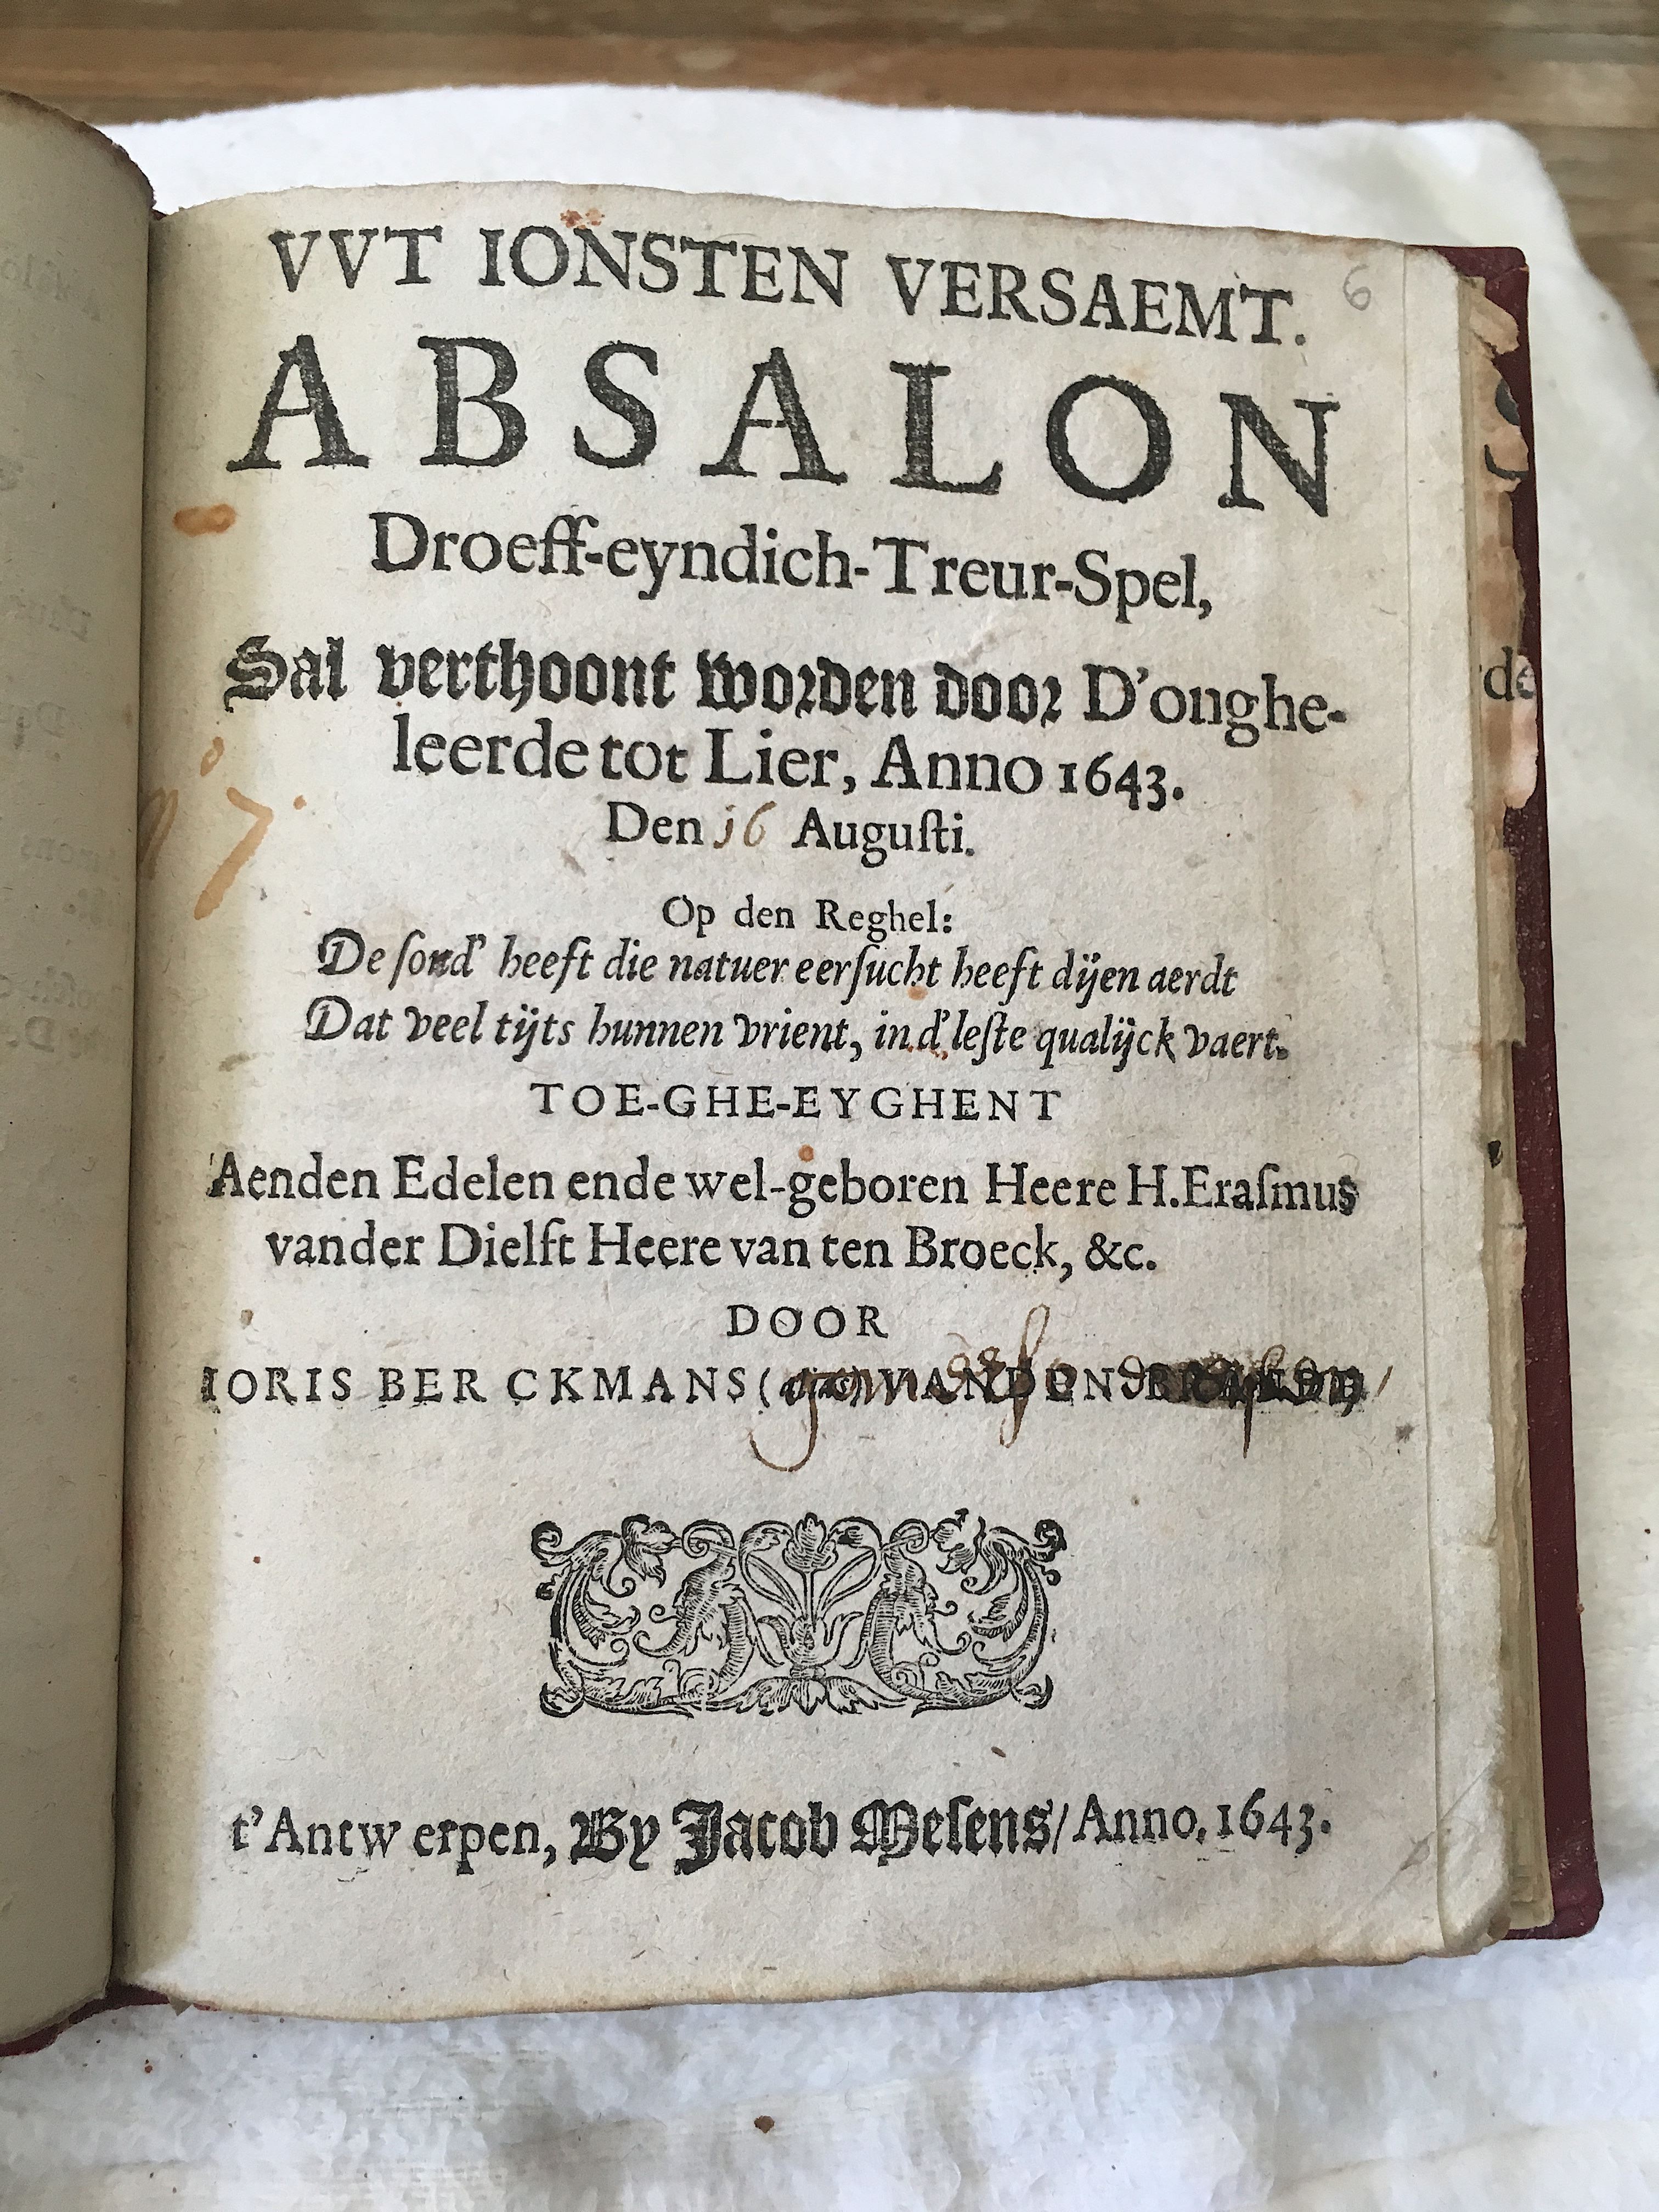 VVT IONSTEN VERSAEMT.
6
ABSALON
Droeff-eyndich-Treur-Spel,
Sal verthoont worden door D'onghe-
leerde tot Lier, Anno 1643.
Den 16 Augusti.
Op den Reghel:
De sond' heeft die natuer eersucht heeft dijen aerdt
Dat veel tijts hunnen vrient, in d'leste qualijck vaert.
TOE-GHE-EYGHENT
Aenden Edelen ende wel-geboren Heere H. Erasmus
vander Dielft Heere van ten Broeck, &c.
DOOR
IORIS BERCKMANS
t'Antwerpen, By Jacob Mesens/ Anno, 1643.